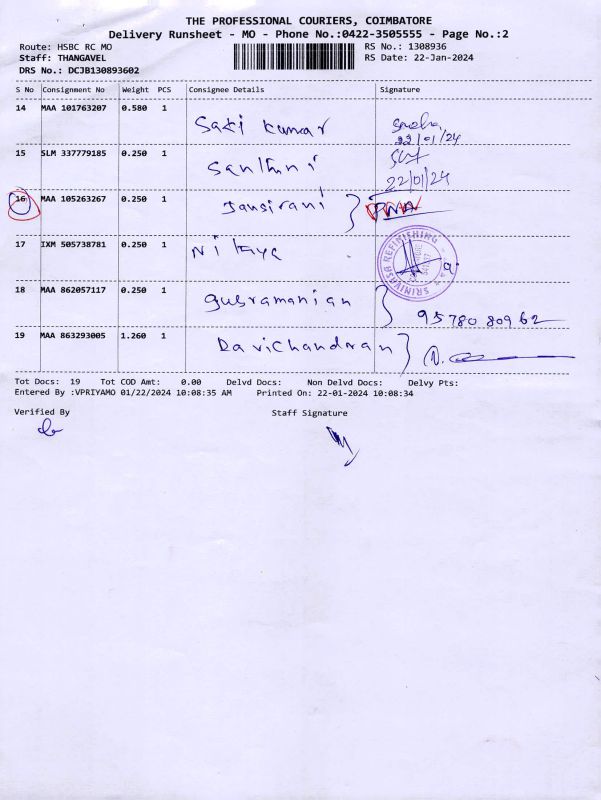 THE PROFESSIONAL COURIERS, COIMBATORE
Delivery Runsheet - MO - Phone No.:0422-3505555 - Page No.:2
Route: HSBC RC MO RS No.: 1308936
Staff: THANGAVEL RS Date: 22-Jan-2024
DRS No.: DCJB130893602
S No Consignment No Weight PCS Consignee Details Signature
14 MAA 101763207 0.580 1 Sati kumar
22/01/24
15 SLM 337779185 0.250 1 Santhni
22/01/24
16 MAA 105263267 0.250 1 Jansirani
17 IXM 505738781 0.250 1
SRINIVASA REFINISHING
18 MAA 862057117 0.250 1 Gubramanian 95780 80962
19 MAA 863293005 1.260 1 Ravichandran
Tot Docs: 19 Tot COD Amt: 0.00 Delvd Docs: Non Delvd Docs: Delvy Pts:
Entered By :VPRIYAMO 01/22/2024 10:08:35 AM Printed On: 22-01-2024 10:08:34
Verified By Staff Signature